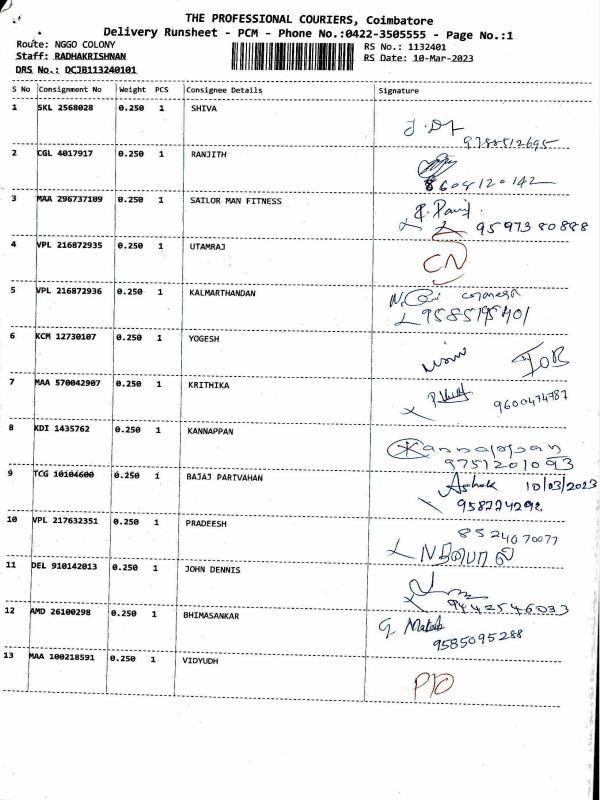 THE PROFESSIONAL COURIERS, Coimbatore
Delivery Runsheet - PCM - Phone No.:0422-3505555 - Page No.:1
Route: NGGO COLONY RS No.: 1132401
Staff: RADHAKRISHNAN RS Date: 10-Mar-2023
DRS No.: DCJB113240101
S No Consignment No Weight PCS Consignee Details Signature
1 SKL 2568028 0.250 1 SHIVA
9788512695
2 CGL 4017917 0.250 1 RANJITH
8608120142
3 MAA 296737109 0.250 1 SAILOR MAN FITNESS
9597380888
4 VPL 216872935 0.250 1 UTAMRAJ
CN
5 VPL 216872936 0.250 1 KALMARTHANDAN
6 KCM 12730107 0.250 1 YOGESH
IOB
7 MAA 570042907 0.250 1 KRITHIKA
9600474787
8 KDI 1435762 0.250 1 KANNAPPAN
Kannappan
9751201093
9 TCG 10104600 0.250 1 BAJAJ PARIVAHAN
Ashok 10/03/2023
10 VPL 217632351 0.250 1 PRADEESH
8524070077
11 DEL 910142013 0.250 1 JOHN DENNIS
9442546033
12 AMD 26100298 0.250 1 BHIMASANKAR
9585095288
13 MAA 100218591 0.250 1 VIDYUDH
PTO